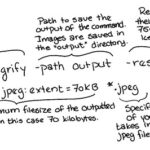 Path to save the
output of the command.
Images are saved in
the "output" directory.
Re
the
75
ke
grify -path output -res
jpeg:extent=70KB *.jpeg
num filesize of the outputted
n this case 70 kilobytes.
Specif
of you
takes in
jpeg file